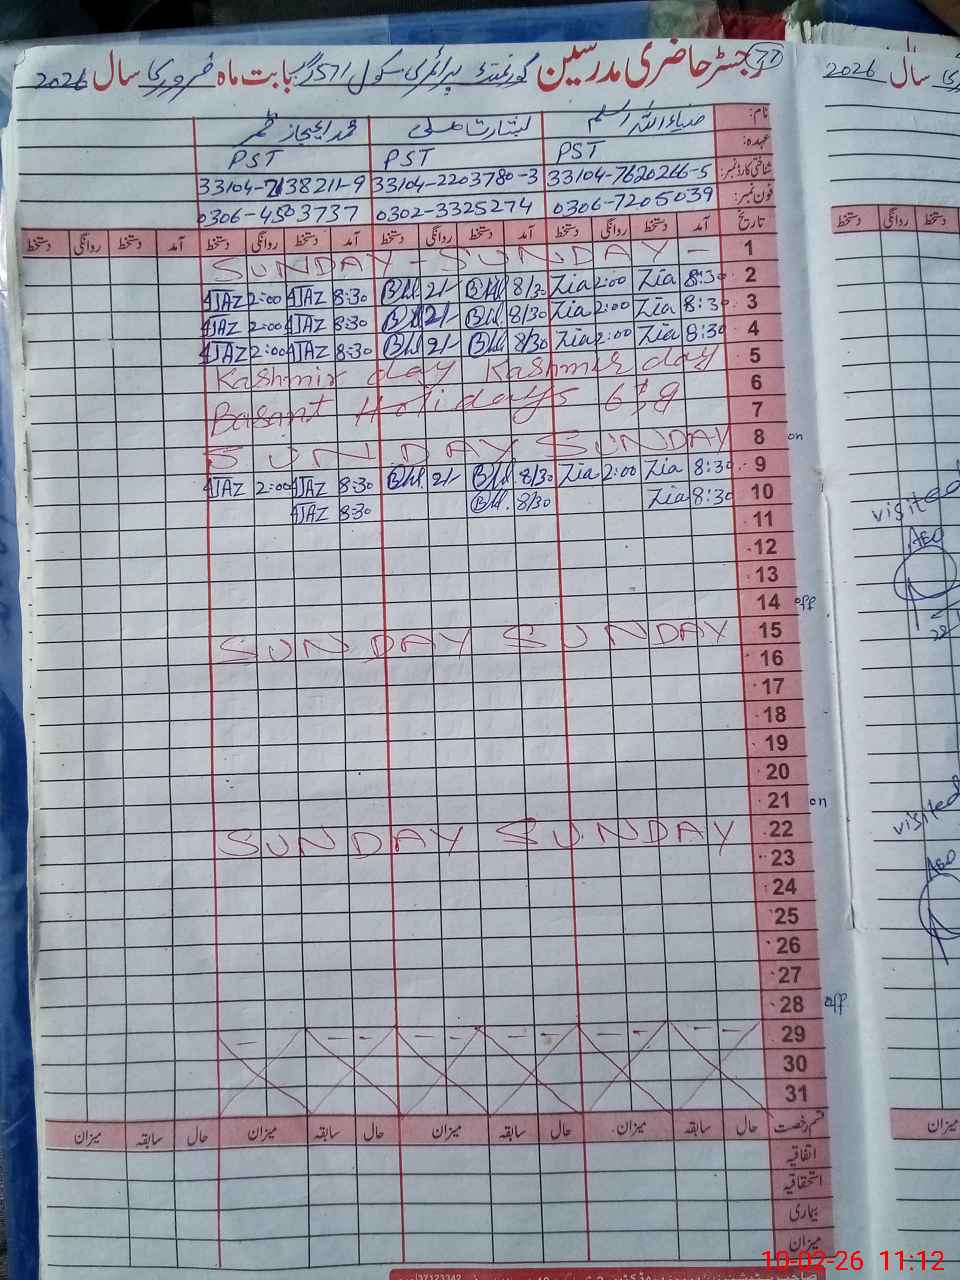 رجسٹر حاضری مدرسین گورنمنٹ پرائمری سکول 571 گ ب بابت ماہ فروری سال 2026
37
سال 2026
نام: ضیاء اللہ اسلم بشارت علی محمد اعجاز
عہدہ: PST PST PST
شناختی کارڈ نمبر: 33104-7620266-5 33104-2203780-3 33104-7138211-9
فون نمبر: 0306-7205039 0302-3325274 0306-4503737
تاریخ آمد دستخط روانگی دستخط آمد دستخط روانگی دستخط آمد دستخط روانگی دستخط آمد دستخط روانگی دستخط
SUNDAY - SUNDAY - 1
AJAZ 2:00 AJAZ 8:30 2/- 8/30 Zia 2:00 Zia 8:30 2
AJAZ 2:00 AJAZ 8:30 2/- 8/30 Zia 2:00 Zia 8:30 3
AJAZ 2:00 AJAZ 8:30 2/- 8/30 Zia 2:00 Zia 8:30 4
Kashmir day Kashmir day 5
6
Basant Holidays 6 & 7
SUNDAY SUNDAY 8 on
AJAZ 2:00 AJAZ 8:30 2/- 8/30 Zia 2:00 Zia 8:30 9
AJAZ 8:30 8/30 Zia 8:30 10
11
12
13
14 off
SUNDAY SUNDAY 15
16
17
18
19
20
21 on
SUNDAY SUNDAY 22
23
24
25
26
27
28 off
29
30
31
قسم رخصت حال سابقہ میزان حال سابقہ میزان حال سابقہ میزان حال سابقہ میزان
اتفاقیہ
استحقاقیہ
بیماری
میزان
visited
AEO
visited
AEO
میزان
10-02-26 11:12